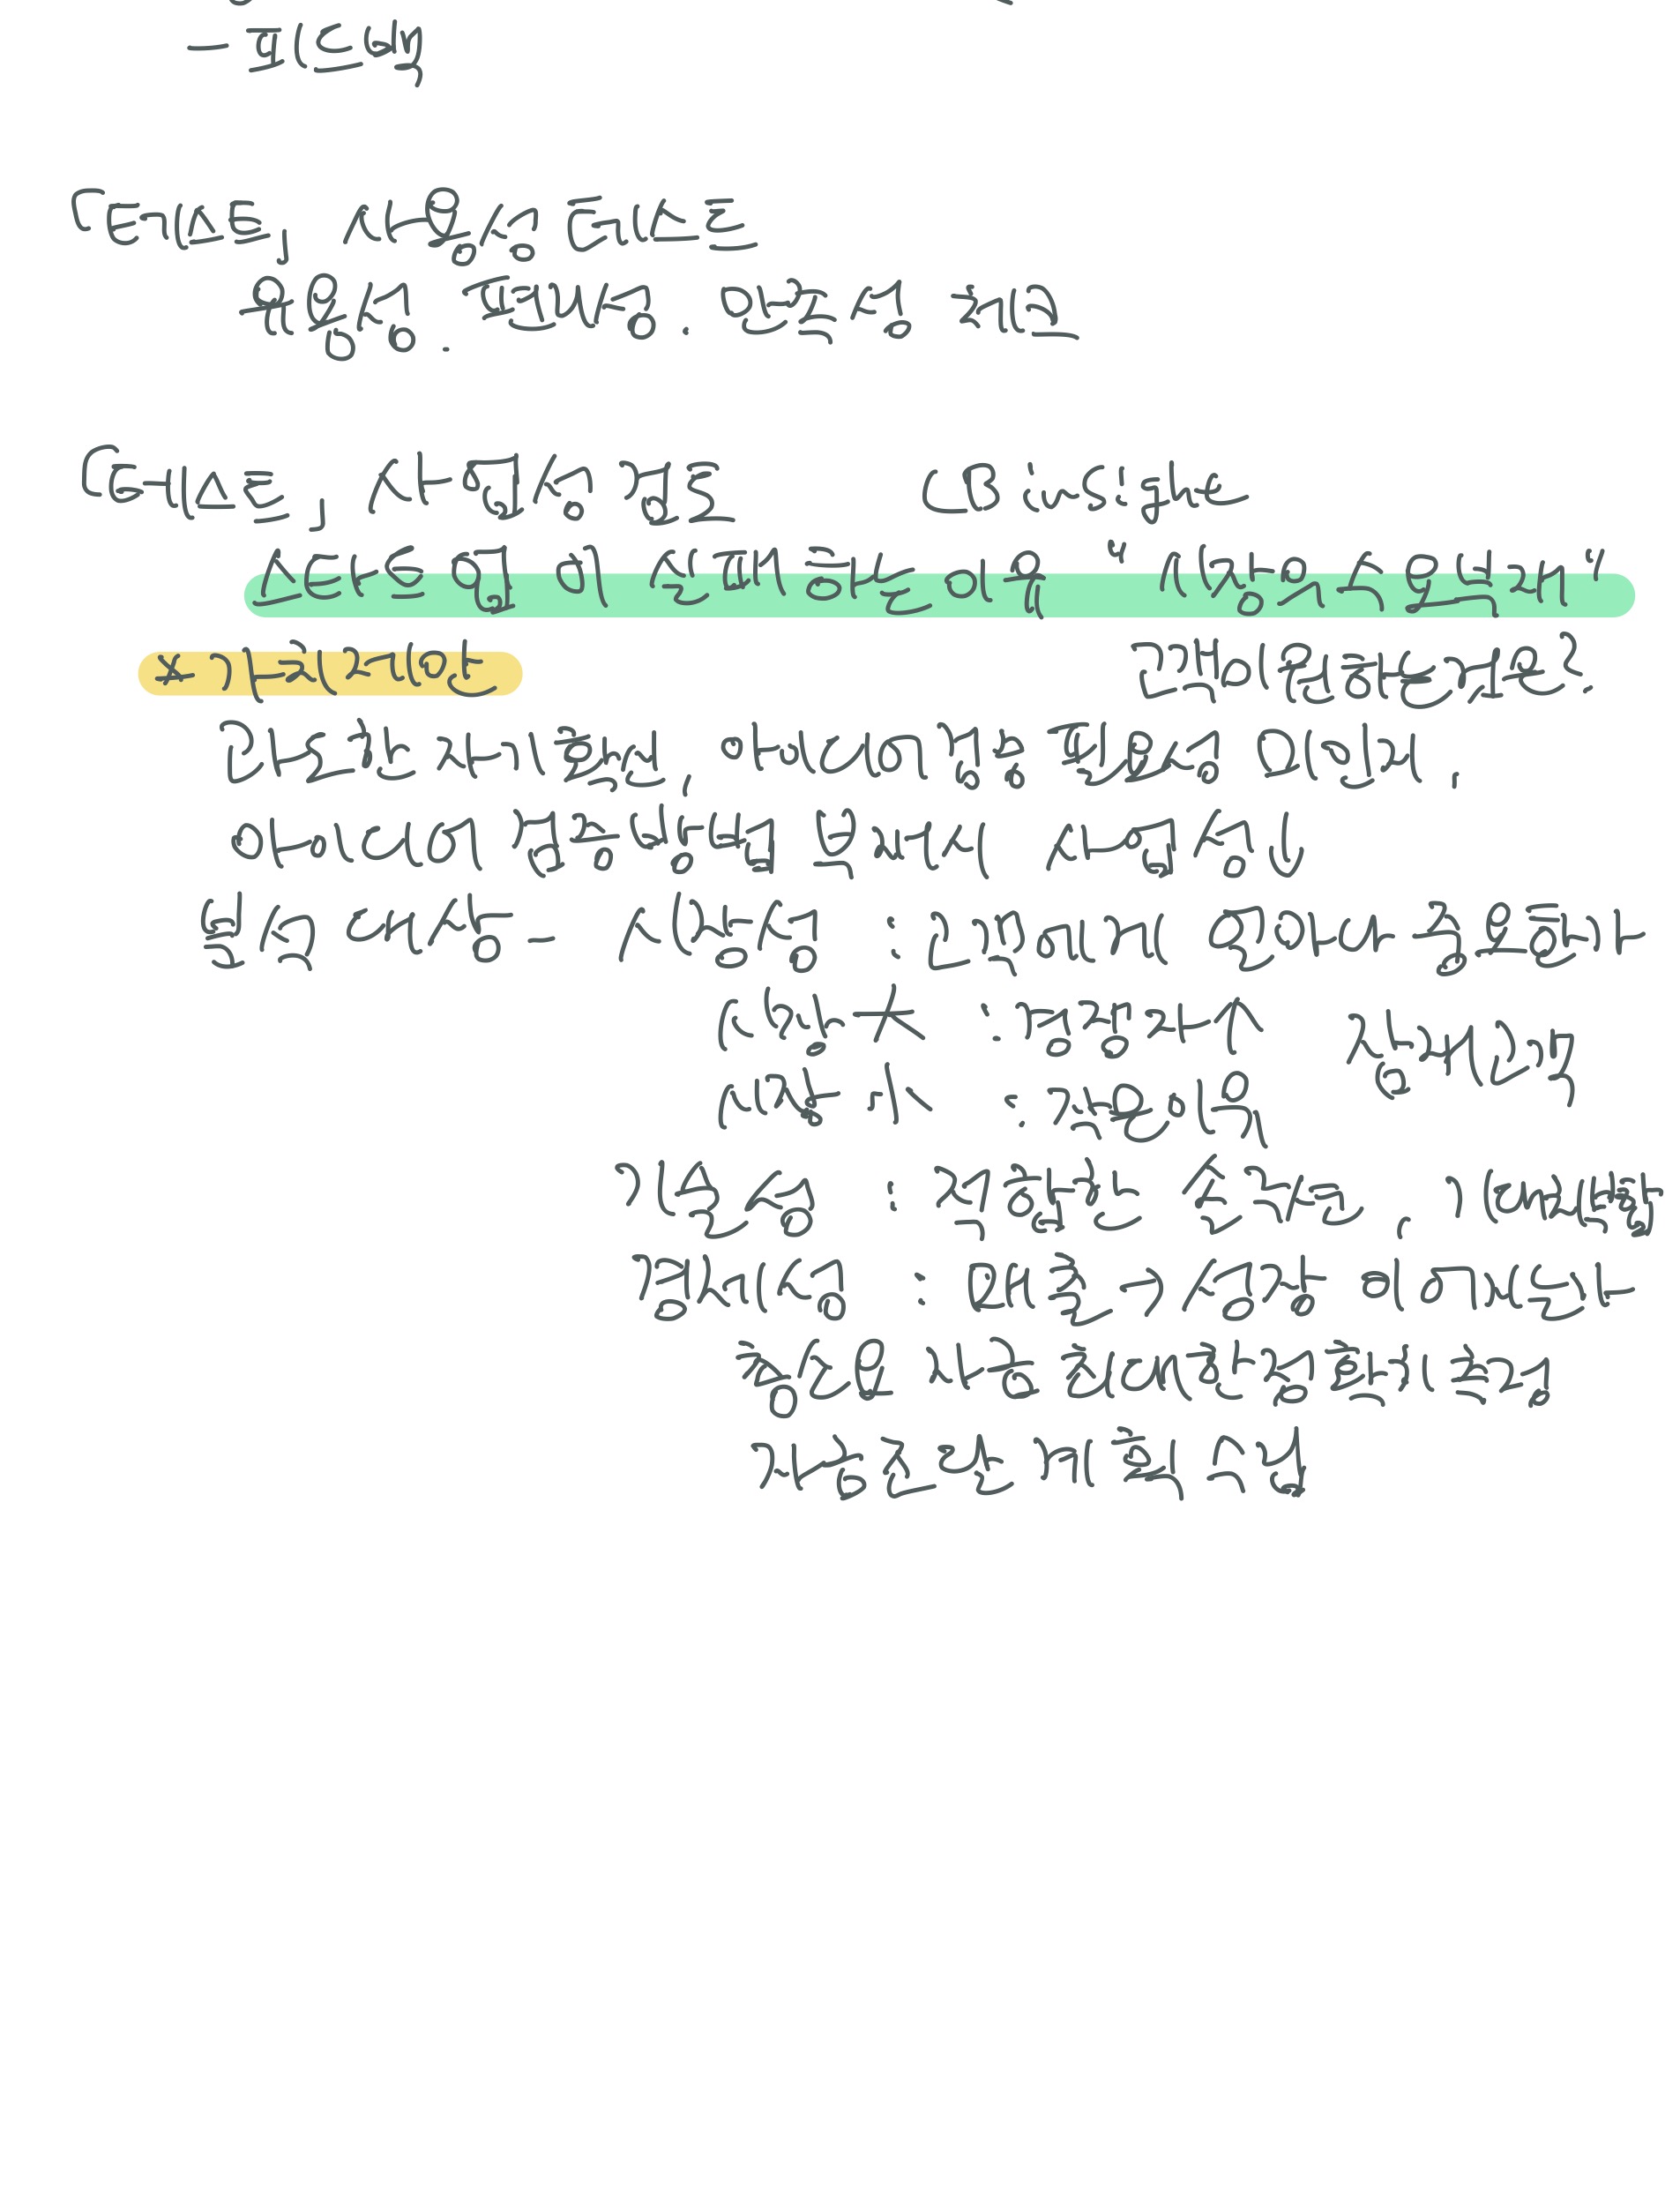 - 피드백
「테스트」 사용성 테스트
유용성. 편의성. 만족성 체크
「테스트」 사업성 검토 CB insight
스타트업이 실패하는 이유 "시장의 수요 부재"
★가치제안 고객이 원하는 것은?
다양한 자기 혁신, 에너지 음료 필요성 마인리.
아이디어 검증 방법 부재시 사업성 ↓
분석 대상 - 시장성 : 고객에게 얼마나 중요한가
시장 大 : 경쟁자↑ 잠재고객
시장 小 : 작은 이윽
기술성 : 적합한 솔루션, 기대 변별
경제성 : 매출 → 성장 이어지는가
총 소요 자금 초과할 경우 회수 측정
자금조달 계획 수립